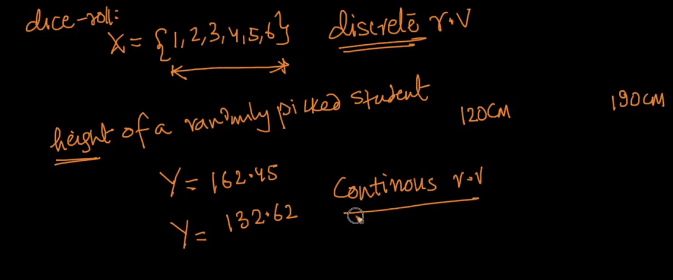 dice-roll:
X = {1,2,3,4,5,6} discrete r.v
height of a randomly picked student 120cm 190cm
Y = 162.45
Continous r.v
Y = 132.62